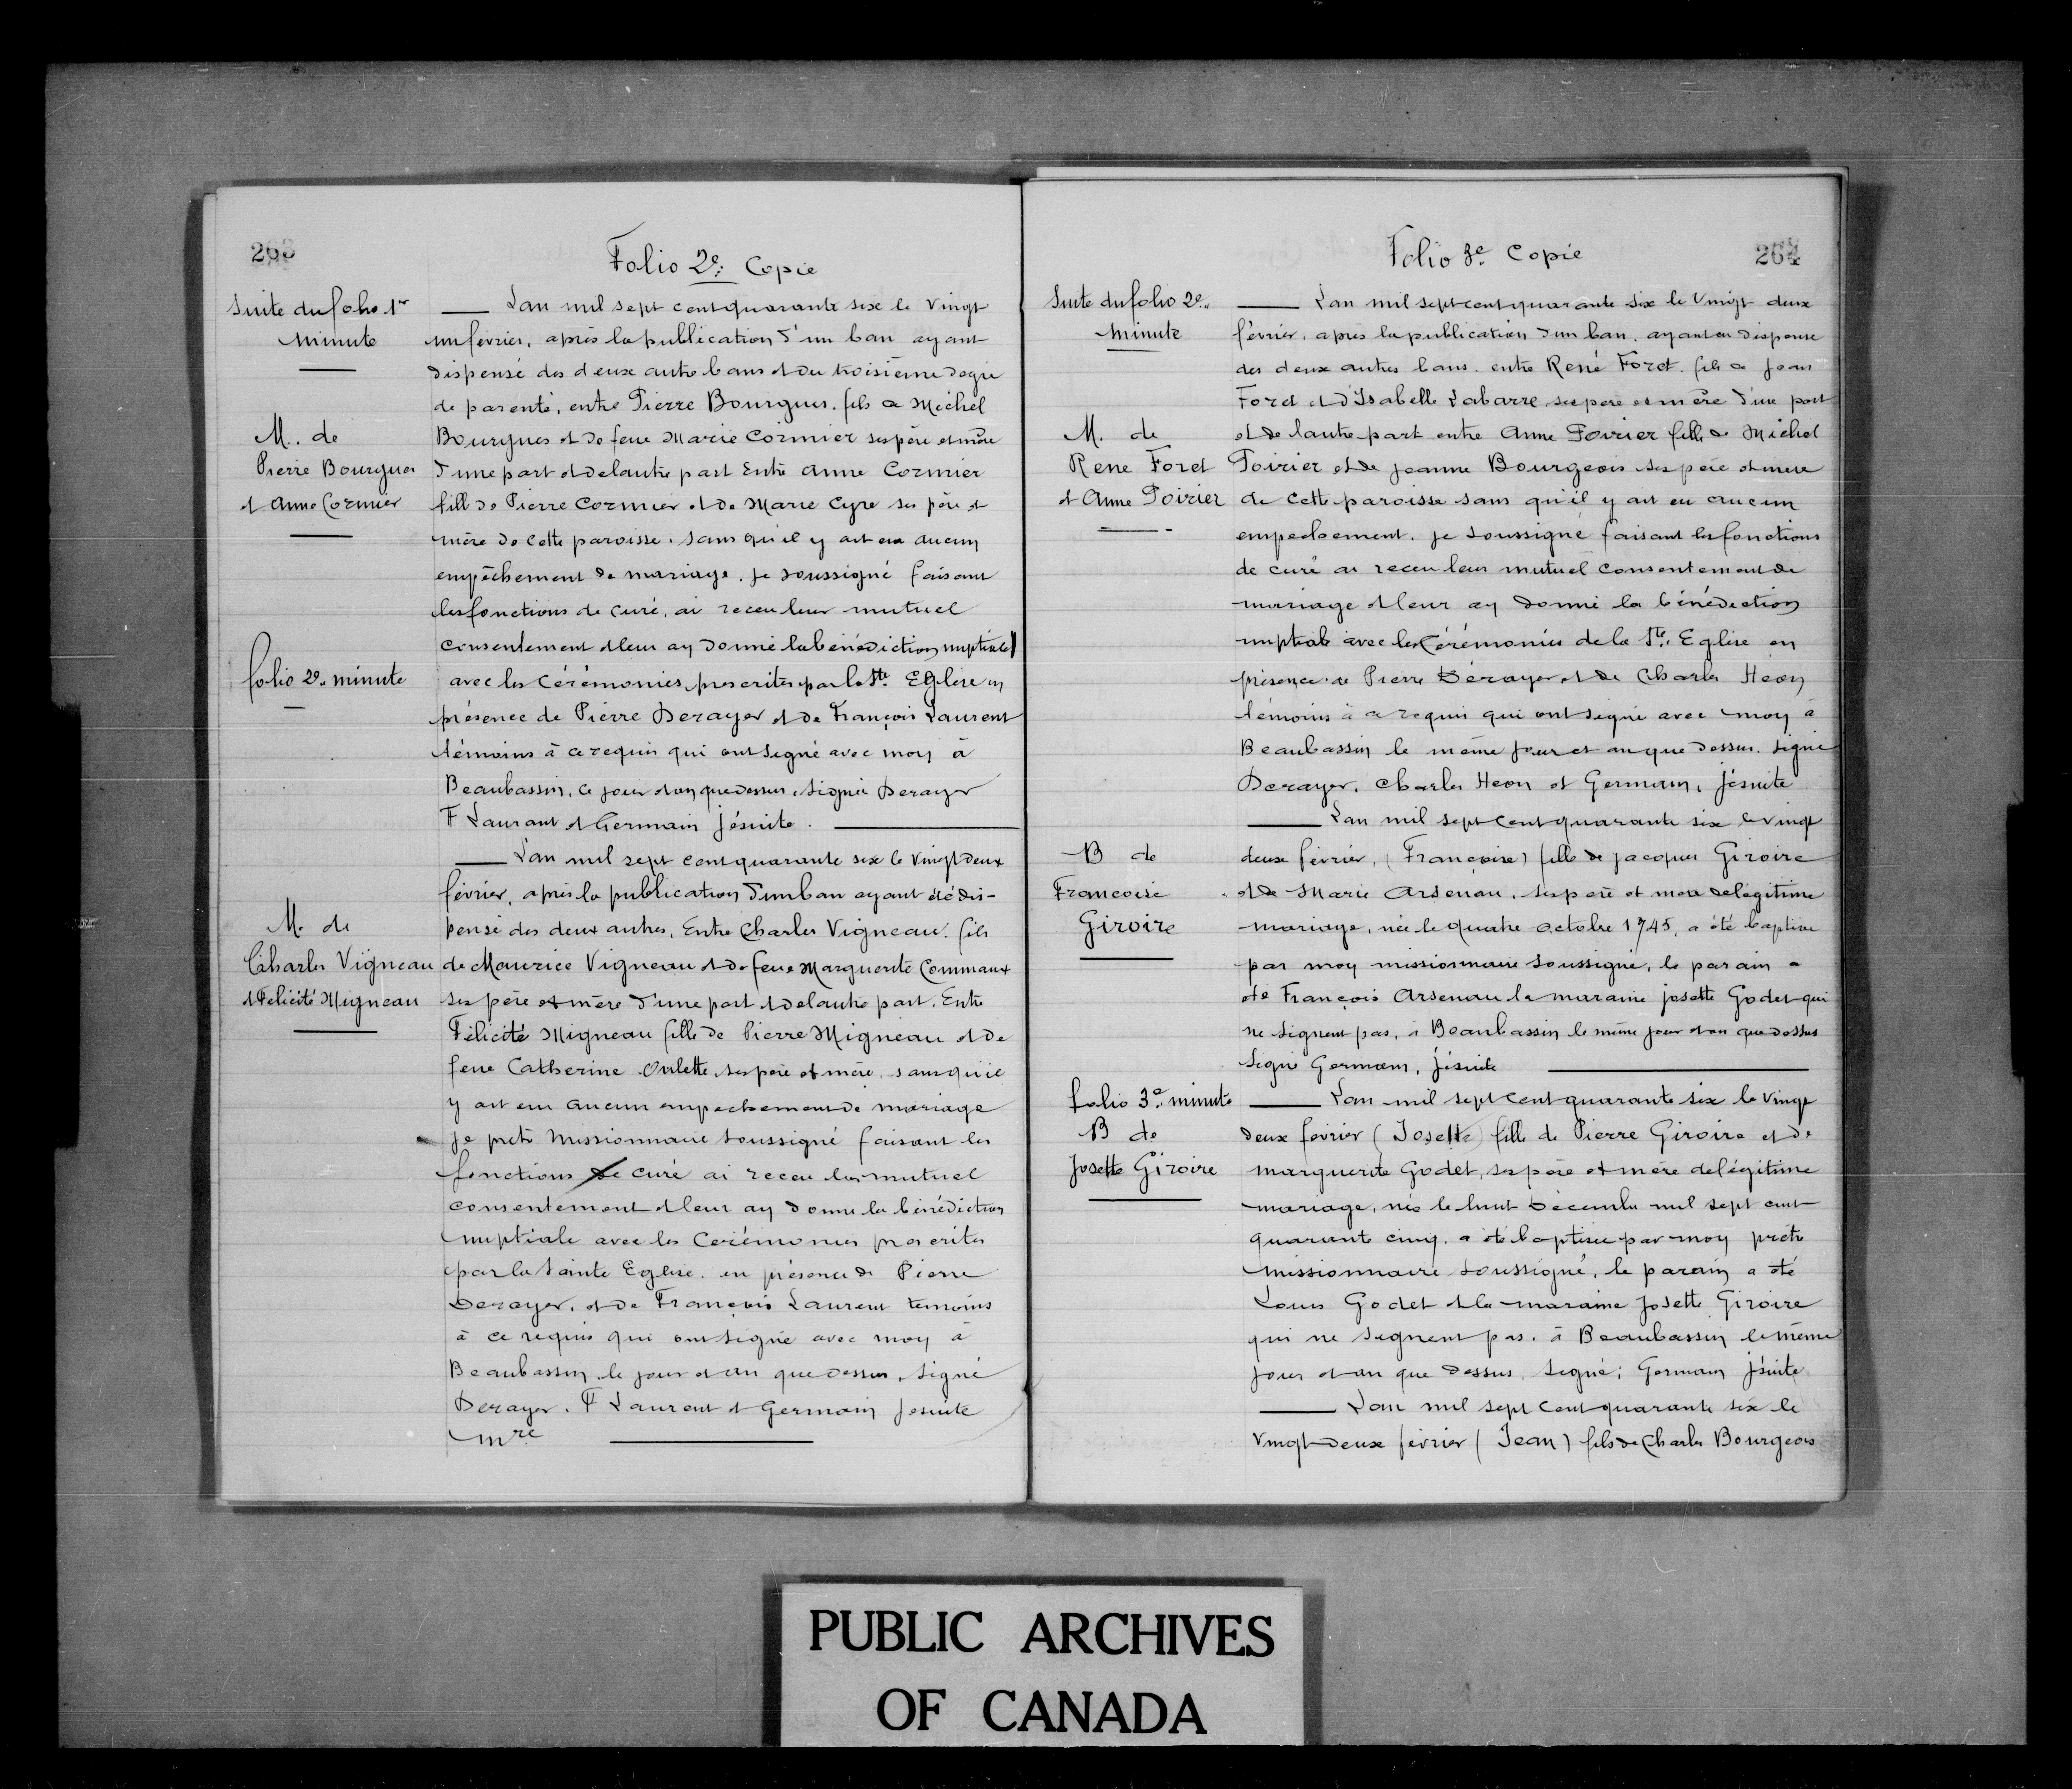 263
Folio 2e: Copie
Suite du folio 1er
minute
M. de
Pierre Bourgues
et Anne Cormier
folio 2e. minute
M. de
Charles Vigneau
et Felicité Migneau
Lan mil sept cent quarante six le vingt
un fevrier, après la publication d'un ban ayant
dispensé des deux autre bans et du troisième degré
de parenté, entre Pierre Bourgues. fils de Michel
Bourgues et de feue Marie Cormier ses père et mère
d'une part et de lautre part Entre Anne Cormier
fille de Pierre Cormier et de Marie Cyre ses père et
mère de cette paroisse. sans qu'il y ait eu aucun
empêchement de mariage. je soussigné faisant
les fonctions de curé, ai receu leur mutuel
consentement et leur ay donné la bénédiction nuptiale
avec les Cérémonies prescrites par la Ste Eglise en
présence de Pierre Derayer et de François Laurent
témoins à ce requis qui ont signé avec moy à
Beaubassin, ce jour et an que dessus, signé Derayer
F Laurant et Germain jésuite.
L'an mil sept cent quarante six le vingt deux
février, après la publication d'un ban ayant été dis-
pensé des deux autres, Entre Charles Vigneau. fils
de Maurice Vigneau et de feue Marguerite Commaux
ses père et mère d'une part et de lautre part. Entre
Félicité Migneau fille de Pierre Migneau et de
feue Catherine Ovilette ses père et mère, sans qu'il
y ait eu aucun empechement de mariage
je pretre Missionnaire soussigné faisant les
fonctions de curé ai receu leur mutuel
consentement et leur ay donné la bénédiction
nuptiale avec les Cerémonies prescrites
par la Sainte Eglise. en présence de Pierre
Derayer, et de François Laurent temoins
à ce requis qui ont signé avec moy à
Beaubassin le jour et an que dessus, signé
Derayer. F Laurent et Germain Jesuite
mre
Folio 3e. Copie
264
Suite du folio 2e.
minute
M. de
Rene Foret
et Anne Poirier
B de
Francoise
Giroire
folio 3e. minute
B de
Josette Giroire
Lan mil sept cent quarante six le vingt deux
février, après la publication d'un ban. ayant eu dispense
des deux autres bans. entre René Foret. fils de Jean
Foret et d'Isabelle Labarre ses père et mère d'une part
et de lautre part entre Anne Poirier fille de Michel
Poirier et de Jeanne Bourgeois ses père et mère
de cette paroisse sans qu'il y ait eu aucun
empechement. je soussigné faisant les fonctions
de curé ai receu leur mutuel consentement de
mariage et leur ay donné la bénédiction
nuptiale avec les Cérémonies de la Ste. Eglise en
présence de Pierre Dérayer et de Charles Heon
témoins à ce requis qui ont signé avec moy à
Beaubassin le même jour et an que dessus. signé
Derayer, Charles Heon et Germain, Jésuite
Lan mil sept cent quarante six le vingt
deux février, (Françoise) fille de jacques Giroire
et de Marie Arsenau, ses père et mère de légitime
mariage, née le quatre octobre 1745, a été baptisée
par moy missionnaire soussigné, le parain a
été François Arsenau la maraine josette Godet qui
ne signent pas, à Beaubassin le même jour et an que dessus
Signé Germain, Jésuite
Lan mil sept cent quarante six le vingt
deux fevrier (Josette) fille de Pierre Giroire et de
Marguerite Godet, ses père et mère de légitime
mariage, née le huit Decembre mil sept cent
quarante cinq. a été baptisée par moy prêtre
missionnaire soussigné, le parain a été
Louis Godet et la maraine Josette Giroire
qui ne signent pas. à Beaubassin le même
jour et an que dessus, signé; Germain Jésuite
Lan mil sept cent quarante six le
vingt-deux fevrier (Jean) fils de Charles Bourgeois
PUBLIC ARCHIVES
OF CANADA